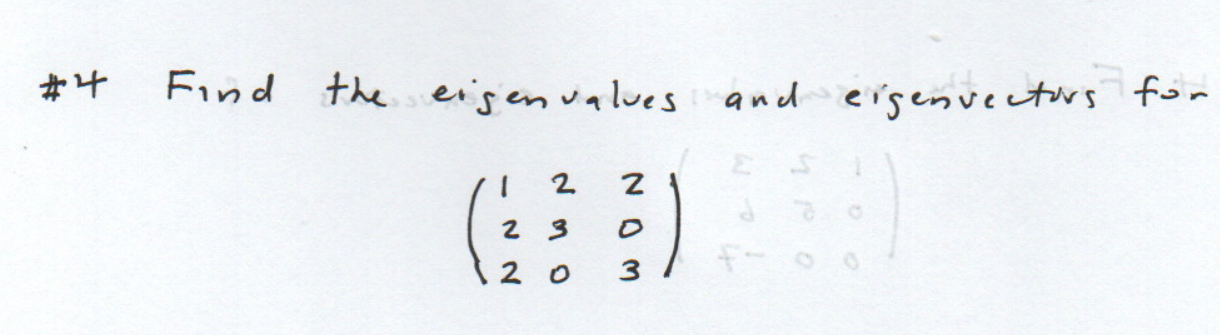 #4 Find the eigenvalues and eigenvectors for
1 2 2
2 3 0
2 0 3